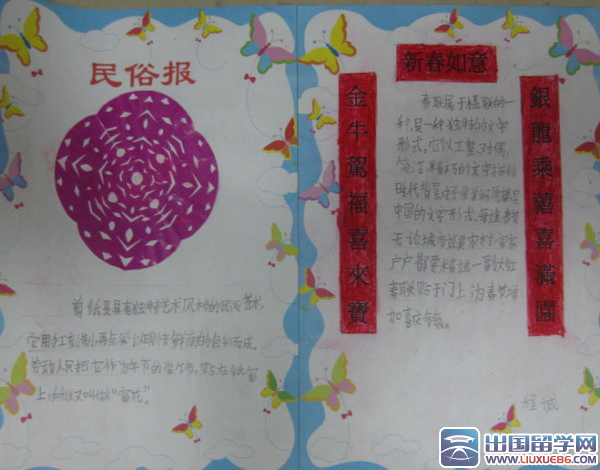 民俗报
剪纸是具有独特艺术风格的民间艺术,
它用手工刻制,再点染以明快鲜丽的色彩而成。
劳动人民把它作为年节的装饰,贴在纸窗
上,所以又叫做"窗花"。
新春如意
金牛駕福喜來寶
春联属于楹联的一
种,是一种独特的文学
形式。它以工整、对偶、
简洁、精巧的文字描绘
时代背景,抒发美好愿望,是
中国的文学形式。每逢春节
无论城市还是农村,家家
户户都要精选一副大红
春联贴于门上,为春节增
加喜庆气氛。
銀龍乘禧喜滿園
程诚
出国留学网
www.LIUXUE86.COM